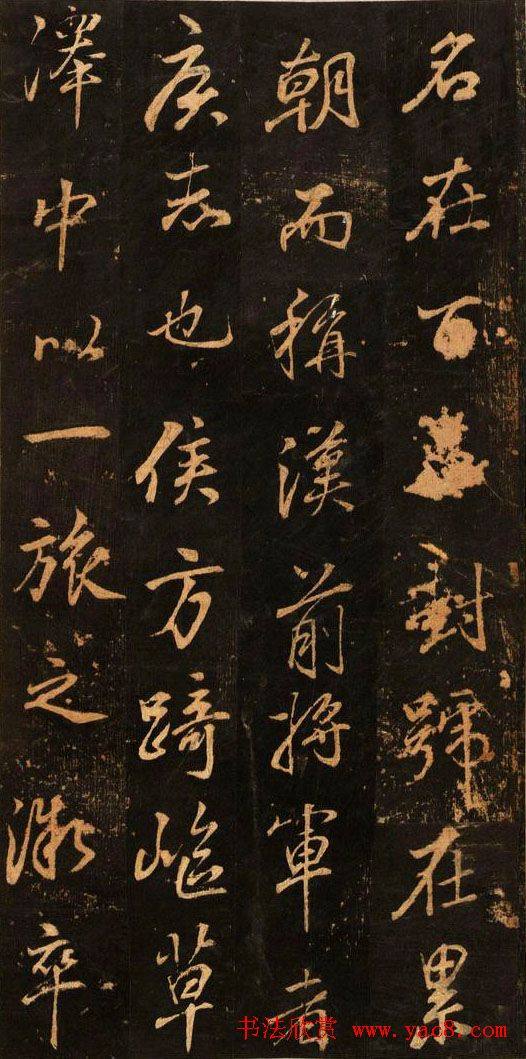 名在百世封號在累
朝而稱漢前將軍者
侯志也侯方踦嶇草
澤中以一旅之漵卒
书法欣赏 www.yac8.com